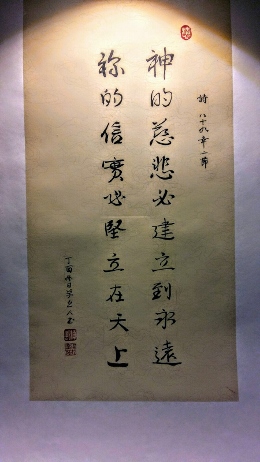 詩 八十九章二節
神的慈悲必建立到永遠
祢的信實必堅立在天上
丁酉